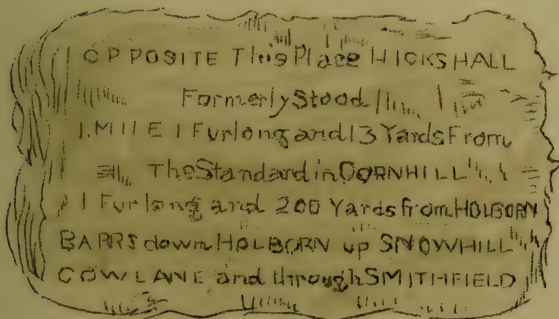 OPPOSITE This Place HICKSHALL
Formerly Stood
1. MILE 1 Furlong and 13 Yards From
The Standard in CORNHILL
1 Furlong and 200 Yards from HOLBORN
BARRS down HOLBORN up SNOWHILL
COWLANE and through SMITHFIELD